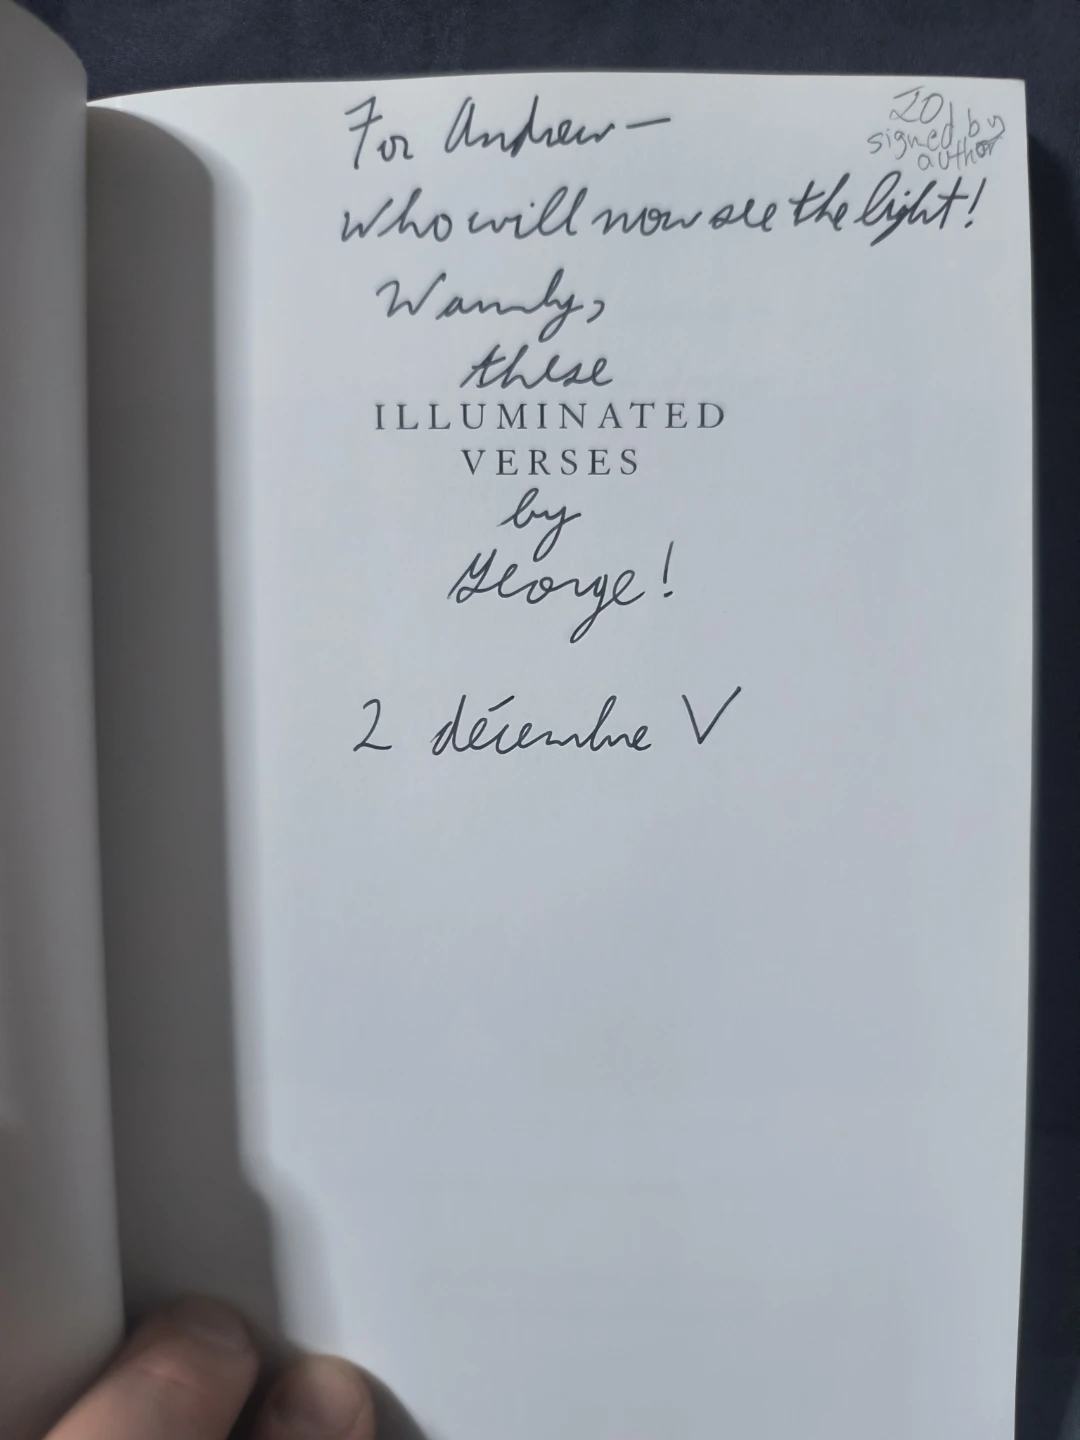 For Andrew—
20
signed by
author
Who will now see the light!
Warmly,
these
ILLUMINATED
VERSES
by
George!
2 décembre V